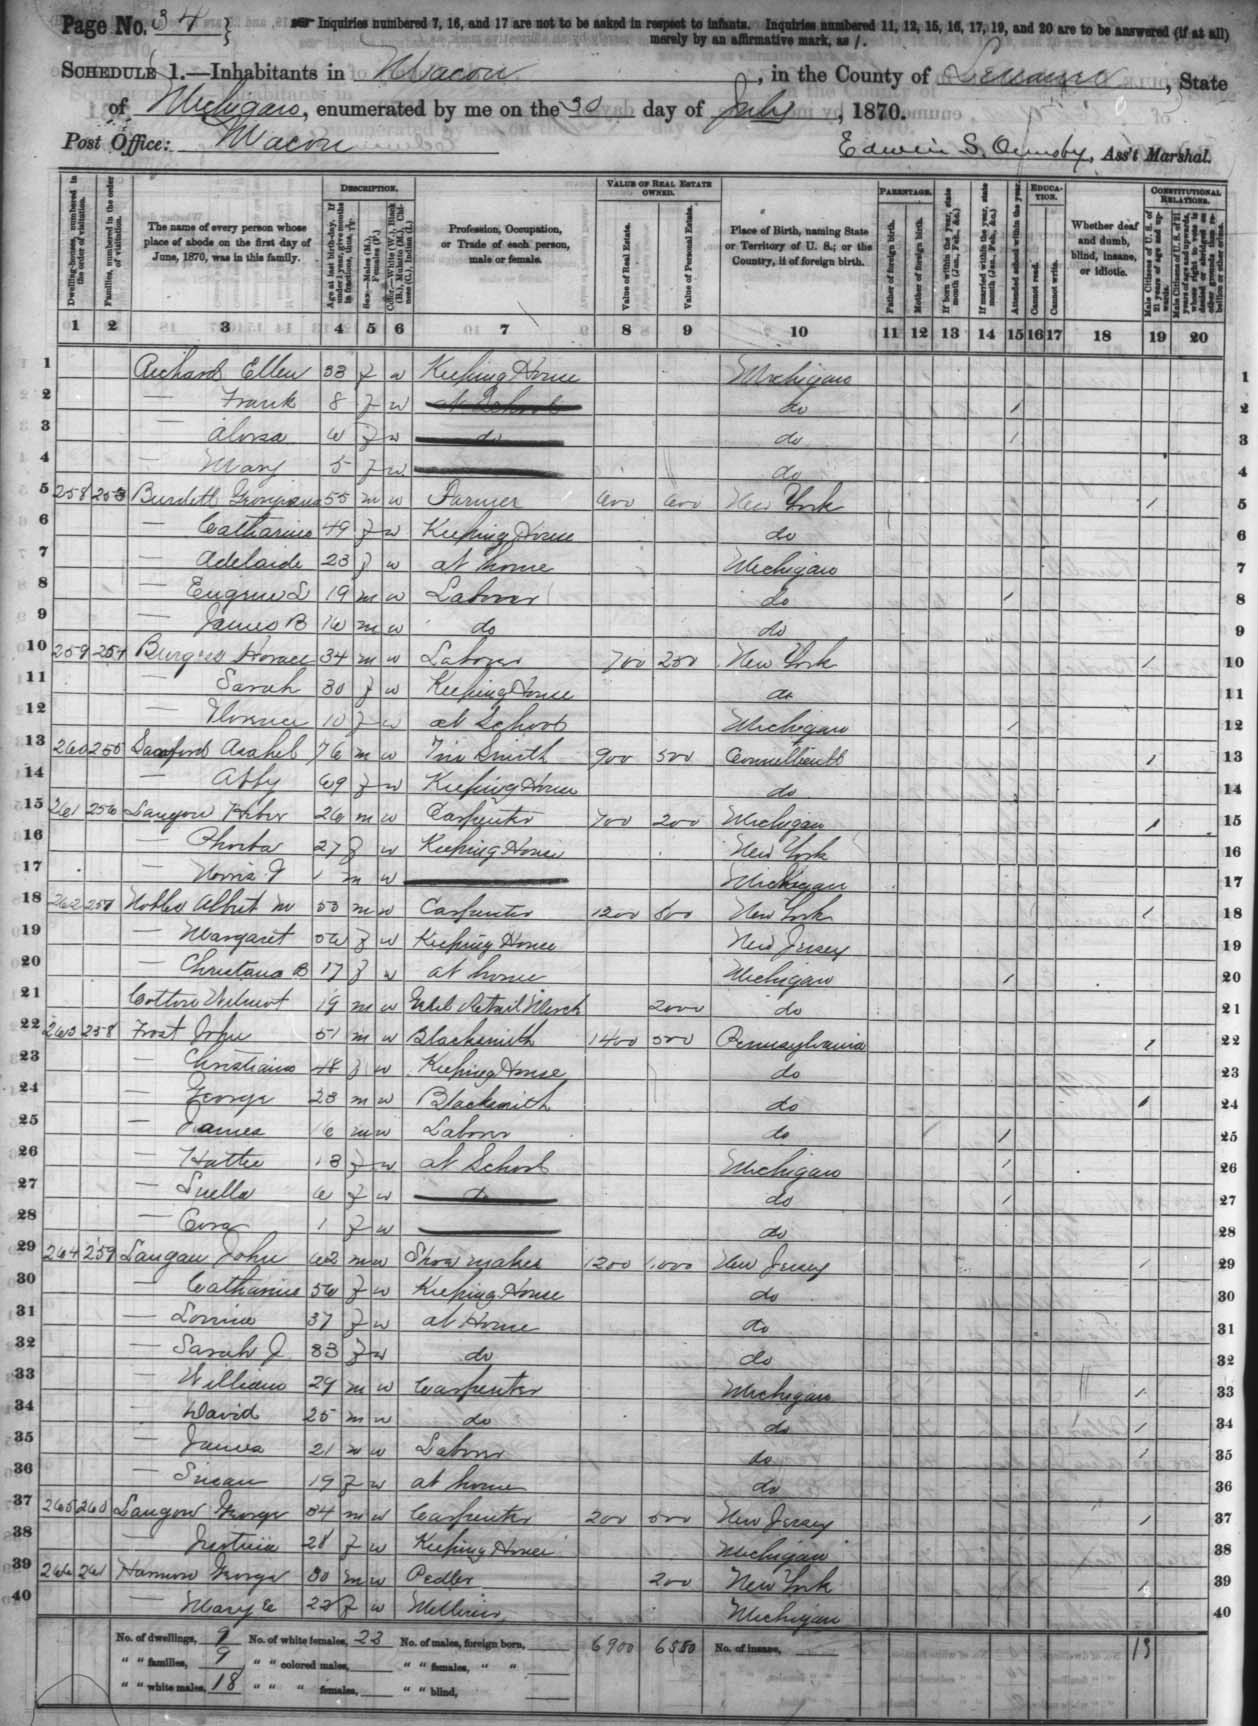 Page No. 34
Inquiries numbered 7, 16, and 17 are not to be asked in respect to infants. Inquiries numbered 11, 12, 15, 16, 17, 19, and 20 are to be answered (if at all) merely by an affirmative mark, as /.
SCHEDULE 1.—Inhabitants in Macon, in the County of Lenawee, State
of Michigan, enumerated by me on the 30 day of July, 1870.
Post Office: Macon
Edwin S. Ormsby, Ass't Marshal.
Dwelling-houses, numbered in the order of visitation.
Families, numbered in the order of visitation.
The name of every person whose place of abode on the first day of June, 1870, was in this family.
DESCRIPTION.
Age at last birth-day. If under 1 year, give months in fractions, thus,
Sex.—Males (M.), Females (F.)
Color.—White (W.), Black (B.), Mulatto (M.), Chinese (C.), Indian (I.)
Profession, Occupation, or Trade of each person, male or female.
VALUE OF REAL ESTATE OWNED.
Value of Real Estate.
Value of Personal Estate.
Place of Birth, naming State or Territory of U. S.; or the Country, if of foreign birth.
PARENTAGE.
Father of foreign birth.
Mother of foreign birth.
If born within the year, state month (Jan., Feb., &c.)
If married within the year, state month (Jan., Feb., &c.)
Attended school within the year.
EDUCATION.
Cannot read.
Cannot write.
Whether deaf and dumb, blind, insane, or idiotic.
CONSTITUTIONAL RELATIONS.
Male Citizens of U. S. of 21 years of age and upwards.
Male Citizens of U. S. of 21 years of age and upwards, whose right to vote is denied or abridged on other grounds than rebellion or other crime.
1 2 3 4 5 6 7 8 9 10 11 12 13 14 15 16 17 18 19 20
1 Richard Ellen 33 f w Keeping House Michigan 1
2 — Frank 8 f w at School do / 2
3 — 6 f w do do / 3
4 — Mary 5 f w do 4
5 258 253 Burdett 55 m w Farmer 600 600 New York / 5
6 — Catharine 49 f w Keeping House do 6
7 — Adelaide 23 f w at home Michigan 7
8 — Eugene L 19 m w Laborer do / 8
9 — James B 16 m w do do 9
10 259 254 Burgess Horace 34 m w Laborer 700 250 New York / 10
11 — Sarah 30 f w Keeping House do 11
12 — Florence 10 f w at School Michigan / 12
13 260 255 Sanford Asahel 76 m w Tin Smith 900 500 Connecticutt / 13
14 — Abby 69 f w Keeping House do 14
15 261 256 Langon 26 m w Carpenter 700 200 Michigan / 15
16 — Pheba 27 f w Keeping House New York 16
17 — 1 m w Michigan 17
18 262 257 Nobles Albert M 53 m w Carpenter 1200 800 New York / 18
19 — Margaret 56 f w Keeping House New Jersey 19
20 — Christana B 17 f w at home Michigan / 20
21 Cotton Wilmot 19 m w Retail Merch 2000 do 21
22 263 258 Frost John 51 m w Blacksmith 1400 500 Pennsylvania / 22
23 — Christiana 48 f w Keeping House do 23
24 — George 23 m w Blacksmith do / 24
25 — James 16 m w Laborer do / 25
26 — Hattie 13 f w at School Michigan / 26
27 — Luella 6 f w do / 27
28 — Cora 1 f w do 28
29 264 259 Langan John 62 m w Shoe maker 1200 1000 New Jersey / 29
30 — Catharine 56 f w Keeping House do 30
31 — 37 f w at Home do 31
32 — Sarah J 33 f w do do 32
33 — William 29 m w Carpenter Michigan / 33
34 — David 25 m w do do / 34
35 — James 21 m w Laborer do / 35
36 — Susan 19 f w at home do 36
37 265 260 Langon George 34 m w Carpenter 200 500 New Jersey / 37
38 — 28 f w Keeping House Michigan 38
39 266 261 George 30 m w Pedler 200 New York / 39
40 — Mary E 22 f w Michigan 40
No. of dwellings, 9 No. of white females, 22 No. of males, foreign born, 6900 6550 No. of insane, 13
" " families, 9 " " colored males, " " females, " "
" " white males, 18 " " " females, " " blind,